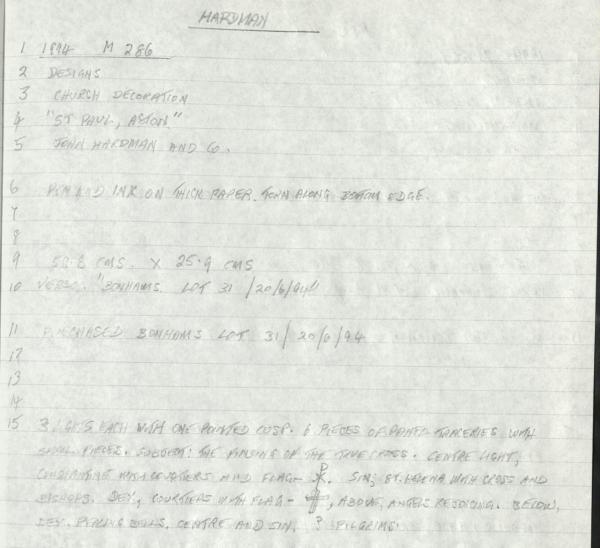 HARDMAN
1 1894 M 286
2 DESIGNS
3 CHURCH DECORATION
4 "ST PAUL, ASTON"
5 JOHN HARDMAN AND CO.
6 PEN AND INK ON THICK PAPER. TORN ALONG BOTTOM EDGE.
7
8
9 58.8 CMS. X 25.9 CMS
10 VERSO. "BONHAMS LOT 31 / 20/6/94"
11 PURCHASED BONHAMS LOT 31/ 20/6/94
12
13
14
15 3 LIGHTS EACH WITH ONE POINTED CUSP. 6 PIECES OF TRACERIES WITH
SMALL PIECES. SUBJECT: THE FINDING OF THE TRUE CROSS. CENTRE LIGHT,
CONSTANTINE WITH COURTIERS AND FLAG - . SIN; ST. HELENA WITH CROSS AND
BISHOPS. DEX, COURTIERS WITH FLAG - , ABOVE, ANGELS REJOICING. BELOW,
DEX. PEALING BELLS, CENTRE AND SIN, ? PILGRIMS.